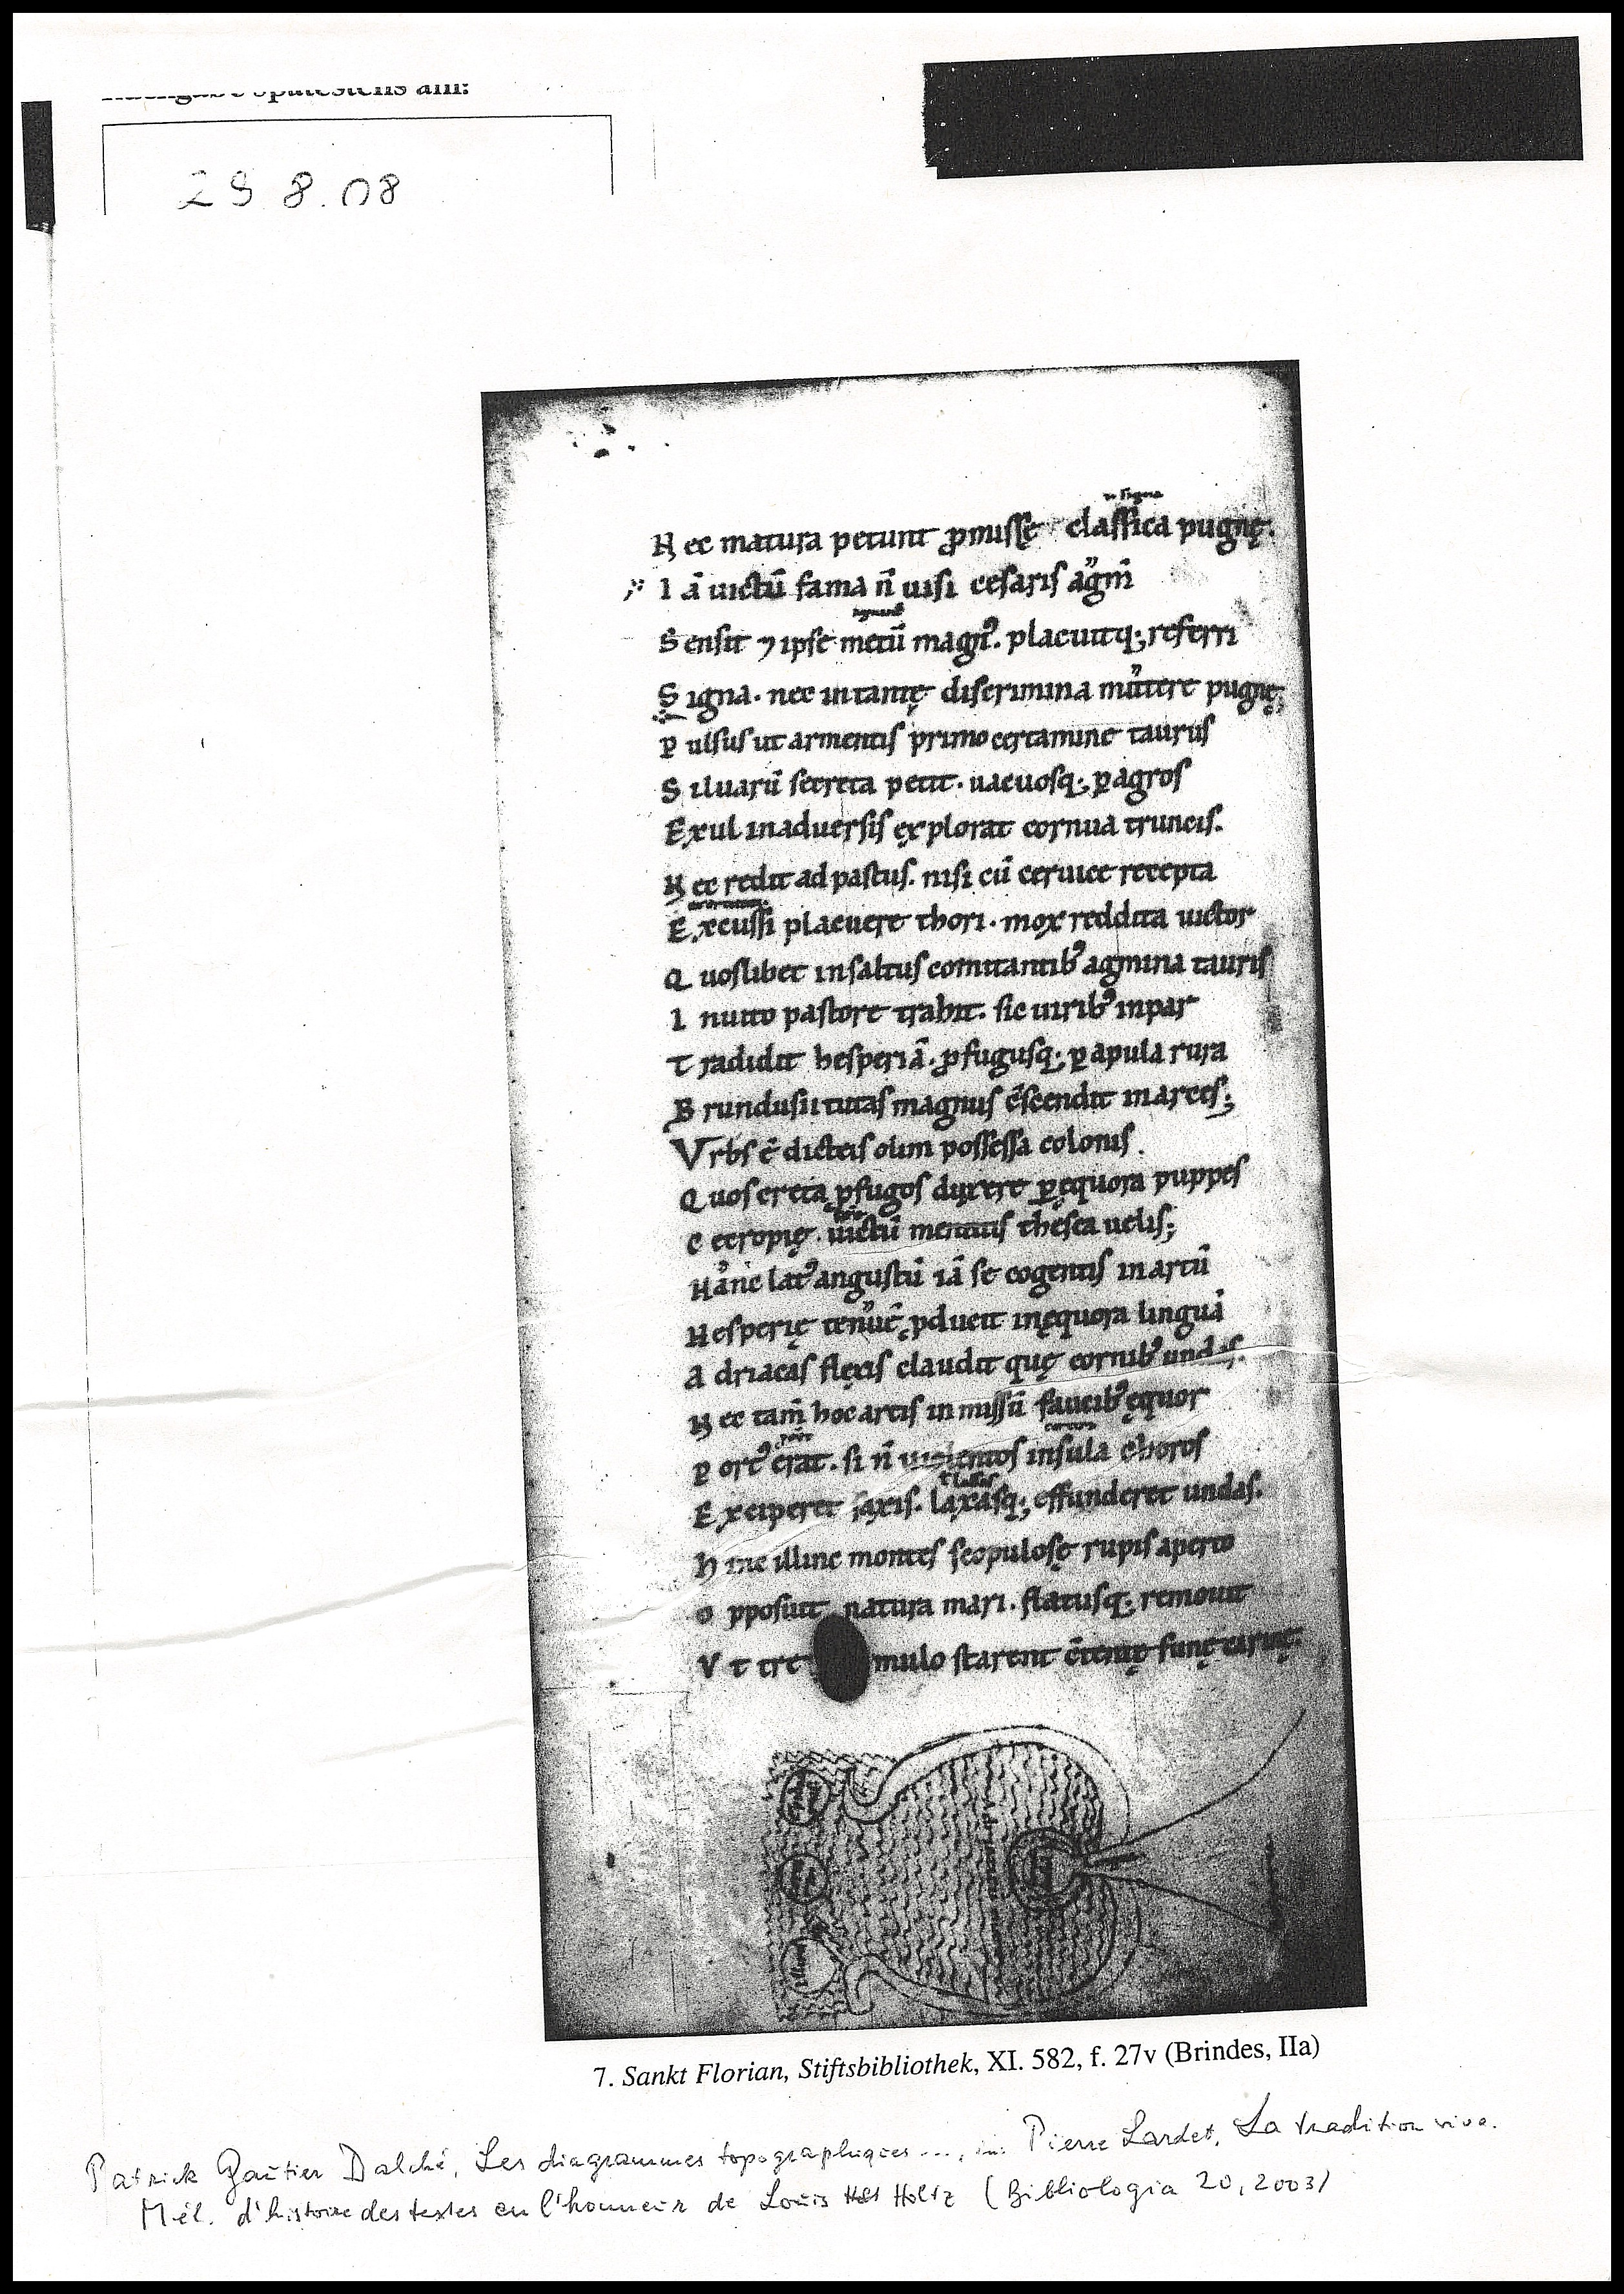 29 8.08
N ec matura petunt ꝓmiſſę claſſica pugnę.
I ā uictū fama n̄ uiſi ceſariſ agm̄
S enſit ⁊ ipſe metū magn᷒. placuitq; referri
S igna. nec in tantę diſcrimina mittere pugnę;
P ulſuſ ut armentiſ primo certamine tauruſ
S iluarū ſecreta petit. uacuoſq; ꝑ agroſ
E xul in aduerſiſ explorat cornua trunciſ.
N ec redit ad paſtuſ. niſi cū ceruice recepta
E xcuſſi placuere thori. mox reddita uictor
Q uoſlibet in ſaltuſ comitantib᷒ agmina tauriſ
I nuito paſtore trahit. ſic uirib᷒ inpar
T radidit heſperiā. ꝓfuguſq; ꝑ apula rura
B runduſii tutaſ magnuſ c̄ſcendit in arceſ;
V rbſ ē dicteiſ olim poſſeſſa coloniſ.
Q uoſ creta ꝓfugoſ duxere ꝑ ęquora puppeſ
C ecropię. uictū mentitiſ theſea ueliſ;
H anc lat᷒ anguſtū iā ſe cogentiſ in artū
H eſperię tenuē ꝓducit in ęquora linguā
A driacaſ flexiſ claudit quę cornib᷒ undaſ.
N ec tam̄ hoc artiſ inmiſſū faucib᷒ ęquor
P ort᷒ erat. ſi n̄ uiolentoſ inſula choroſ
E xciperet ſaxiſ. laxaſq; effunderet undaſ.
H inc illinc monteſ ſcopuloſę rupiſ aperto
O ppoſuit natura mari. flatuſq; remouit
V t tre mulo ſtarent c̄tentę funę carinę.
7. Sankt Florian, Stiftsbibliothek, XI. 582, f. 27v (Brindes, IIa)
Patrick Gautier Dalché, Les diagrammes topographiques ..., in: Pierre Lardet, La tradition vive.
Mél. d'histoire des textes en l'honneur de Louis Holtz (Bibliologia 20, 2003)